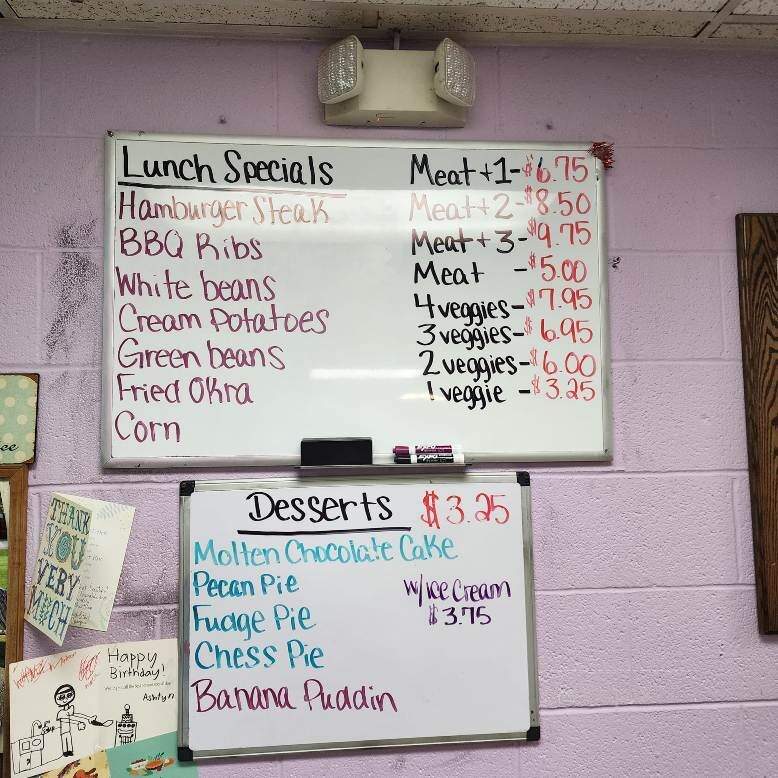 Lunch Specials
Hamburger Steak
BBQ Ribs
White beans
Cream Potatoes
Green beans
Fried Okra
Corn
Meat+1-$6.75
Meat+2-$8.50
Meat+3-$9.75
Meat -$5.00
4 veggies-$7.95
3 veggies-$6.95
2 veggies-$6.00
1 veggie -$3.25
EXPO
EXPO
Desserts $3.25
Molten Chocolate Cake
Pecan Pie
Fudge Pie
Chess Pie
Banana Puddin
w/ice Cream
$3.75
THANK
YOU
VERY
MUCH
Happy
Birthday!
Ashtyn